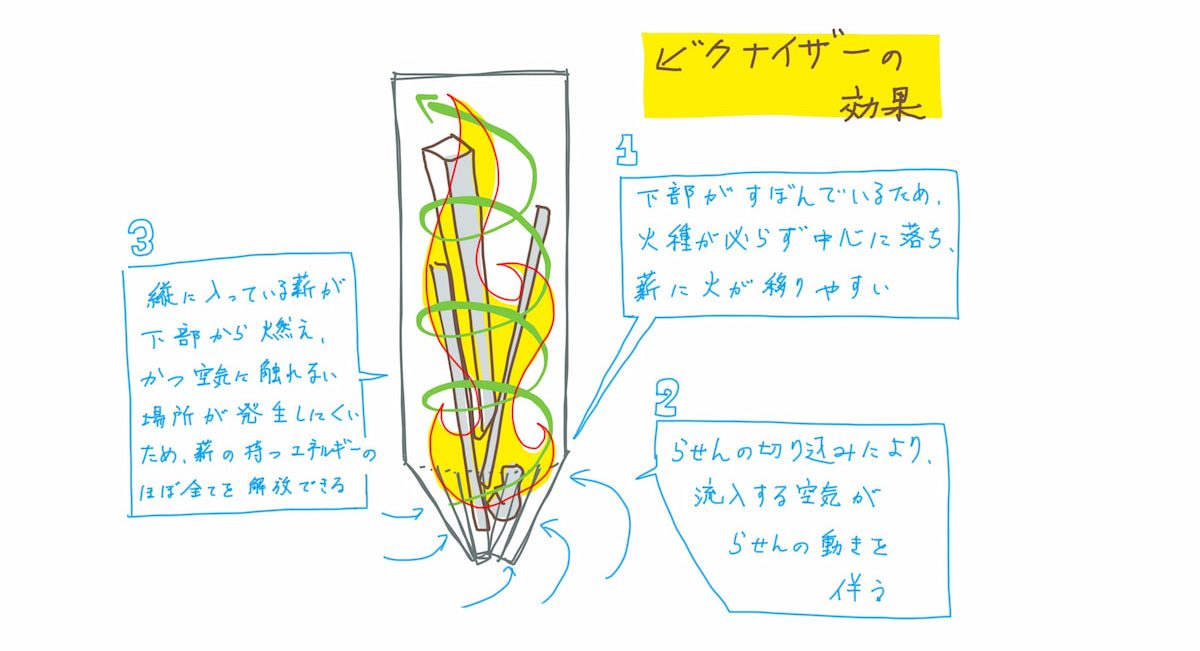 ビクナイザーの
効果
1
下部がすぼんでいるため、
火種が必らず中心に落ち、
薪に火が移りやすい
2
らせんの切り込みにより、
流入する空気が
らせんの動きを
伴う
3
縦に入っている薪が
下部から燃え、
かつ空気に触れない
場所が発生しにくい
ため、薪の持つエネルギーの
ほぼ全てを解放できる